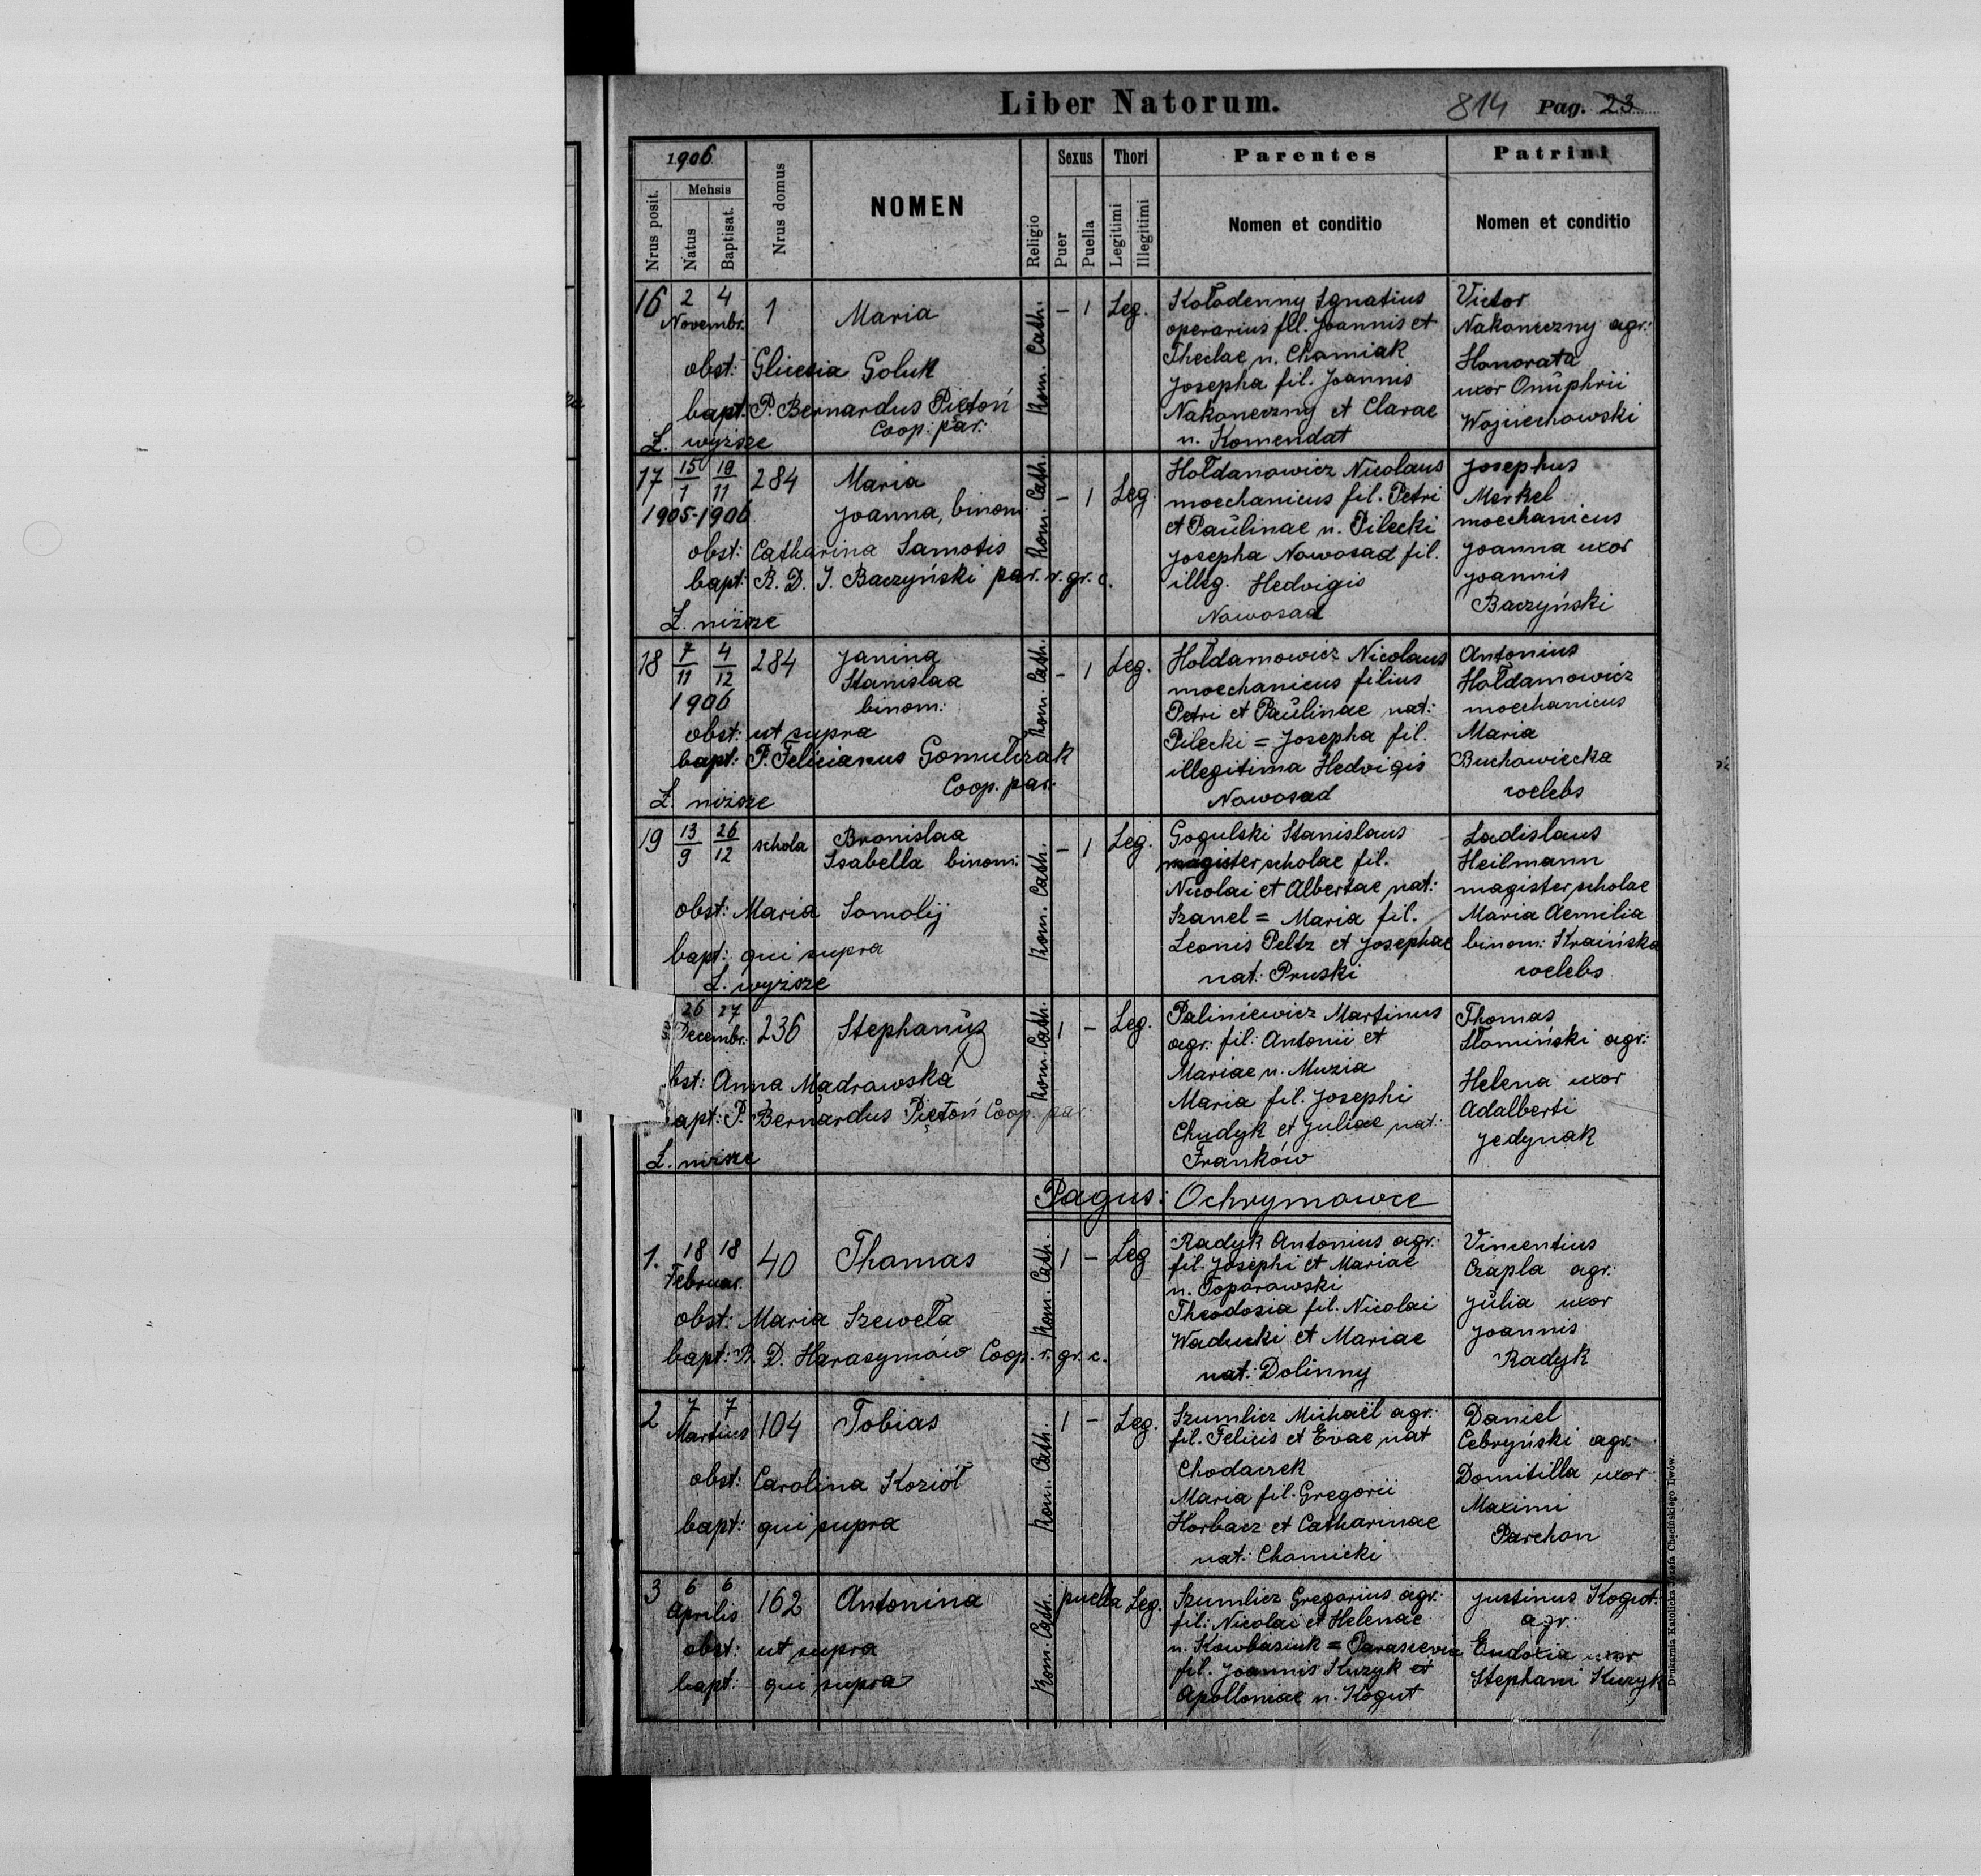 Liber Natorum.
814 Pag. 23
1906
Nrus posit.
Mensis
Natus
Baptisat.
Nrus domus
NOMEN
Religio
Sexus
Puer
Puella
Thori
Legitimi
Illegitimi
Parentes
Nomen et conditio
Patrini
Nomen et conditio
16 2 4 1 Maria Rom. Cath. – 1 Leg.
Novembr.
obst: Glicesia Goluk
bapt: P. Bernardus Piętoń
Coop. par.
Ł. wyższe
Kołodenny Ignatius
operarius fil. Joannis et
Theclae n. Chamiak
Josepha fil. Joannis
Nakoneczny et Clarae
n. Komendat
Victor
Nakoneczny agr.
Honorata
uxor Onuphrii
Wojciechowski
17 15/1 19/11 284 Maria Rom. Cath. – 1 Leg.
1905-1906 Joanna, binom
obst: Catharina Samotis
bapt: R. D. J. Baczyński par. r. gr. c.
Ł. niższe
Hołdanowicz Nicolaus
moechanicus fil. Petri
et Paulinae n. Pilecki
Josepha Nowosad fil.
illeg. Hedvigis
Nowosad
Josephus
Merkel
moechanicus
Joanna uxor
Joannis
Baczyński
18 7/11 4/12 284 Janina Rom. Cath. – 1 Leg.
Stanislaa
1906 binom:
obst: ut supra
bapt: P. Felicianus Gomulczak
Coop. par.
Ł. niższe
Hołdamowicz Nicolaus
moechanicus filius
Petri et Paulinae nat:
Pilecki = Josepha fil.
illegitima Hedvigis
Nowosad
Antonius
Hołdamowicz
moechanicus
Maria
Buchowiecka
coelebs
19 13/9 26/12 schola Bronislaa Rom. Cath. – 1 Leg.
Isabella binom:
obst: Maria Somolij
bapt: qui supra
Ł. wyższe
Gogulski Stanislaus
magister scholae fil.
Nicolai et Albertae nat:
Szanel = Maria fil.
Leonis Peltz et Josephae
nat: Pruski
Ladislaus
Heilmann
magister scholae
Maria Aemilia
binom: Kraińska
coelebs
26 27 236 Stephanus Rom. Cath. 1 – Leg.
Decembr.
bst: Anna Madrawska
apt: P. Bernardus Piętoń Coop. par.
Ł. niższe
Paliniewicz Martinus
agr: fil: Antonii et
Mariae n. Muzia
Maria fil. Josephi
Chudyk et Juliae nat:
Franków
Thomas
Słomiński agr:
Helena uxor
Adalberti
Jedynak
Pagus: Ochrymowce
1. 18 18 40 Thomas Rom. Cath. 1 – Leg
Februar.
obst: Maria Szeweła
bapt: R. D. Harasymów Coop. r. gr. c.
Radyk Antonius agr:
fil. Josephi et Mariae
n. Toporowski
Theodosia fil. Nicolai
Waducki et Mariae
nat: Dolinny
Vincentius
Czapla agr:
Julia uxor
Joannis
Radyk
2 7 7 104 Tobias Rom. Cath. 1 – Leg.
Martius
obst: Carolina Kozioł
bapt: qui supra
Szumlicz Michaël agr:
fil. Felicis et Evae nat
Chodaczek
Maria fil. Gregorii
Horbacz et Catharinae
nat: Chamicki
Daniel
Cebryński agr:
Domitilla uxor
Maximi
Parchon
3 6 6 162 Antonina Rom. Cath. puella Leg.
Aprilis
obst: ut supra
bapt: qui supra
Szumlicz Gregorius agr:
fil: Nicolai et Helenae
n. Kowbasiuk = Parascevia
fil. Joannis Kuzyk et
Apolloniae n. Kogut
Justinus Kogut
agr.
Eudoxia uxor
Stephani Kuzyk
Drukarnia Katolicka Józefa Chęcińskiego Lwów.